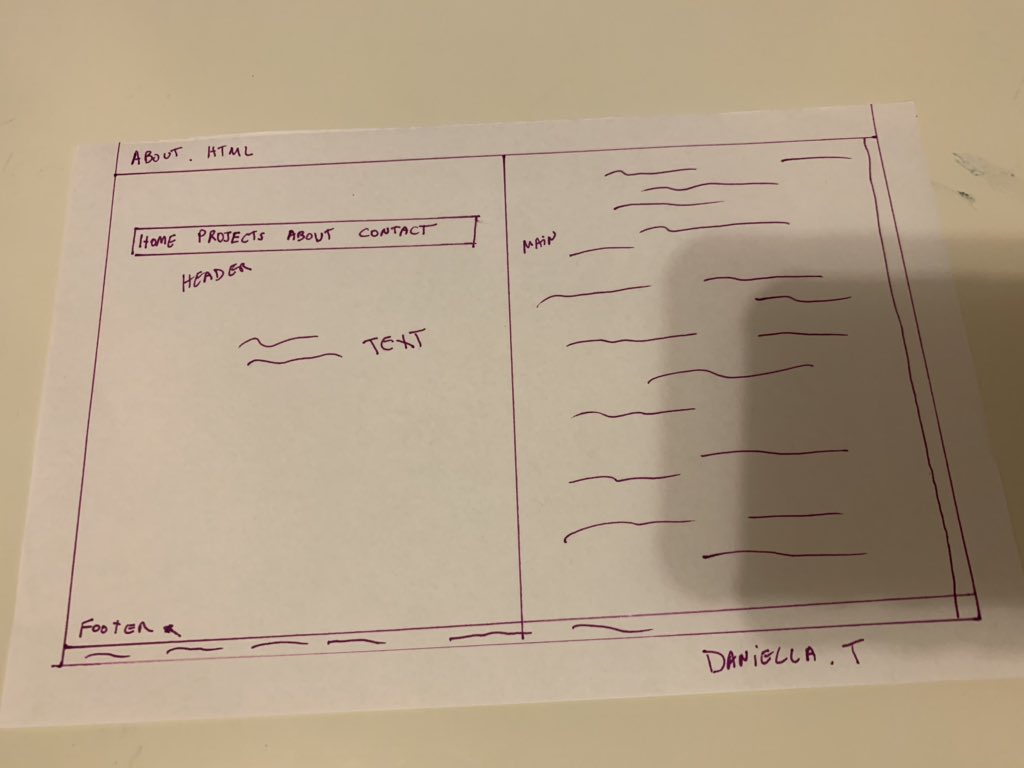 ABOUT. HTML
HOME PROJECTS ABOUT CONTACT
HEADER
TEXT
MAIN
FOOTER
DANIELLA. T